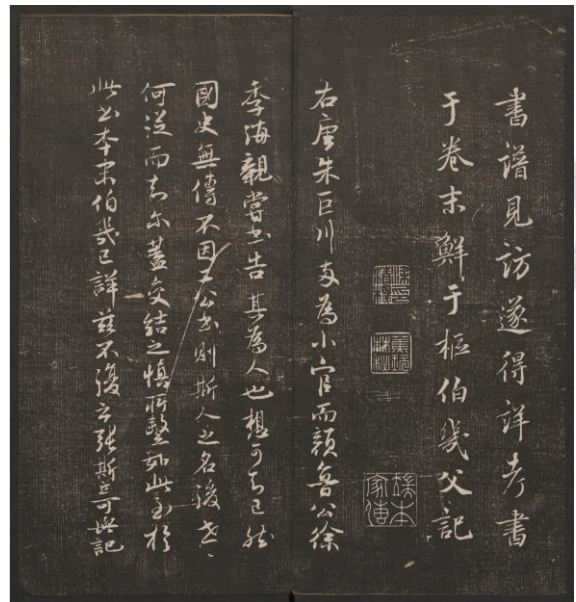 書譜見訪遂得詳考書
于卷末鮮于樞伯幾父記
端本家傳
右唐朱巨川為小官而顏魯公徐
季海親嘗書告其為人也想可知已然
國史無傳不因二公書則斯人之名後世
何從而知尔蓋交結之慎所繫如此至於
此書本末伯幾已詳茲不復云張斯立可與記